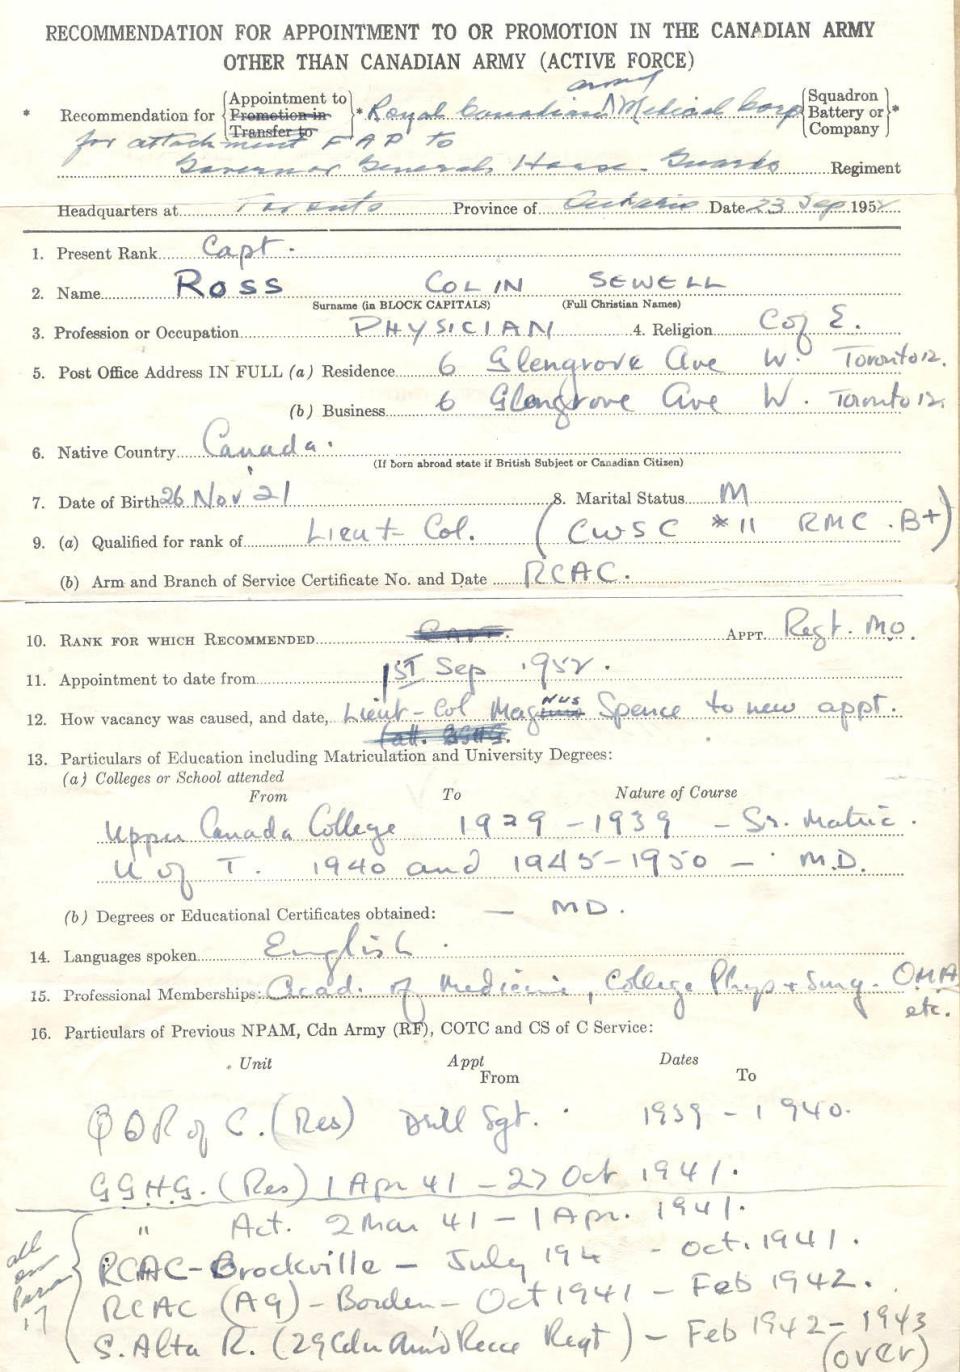 RECOMMENDATION FOR APPOINTMENT TO OR PROMOTION IN THE CANADIAN ARMY
OTHER THAN CANADIAN ARMY (ACTIVE FORCE)
* Recommendation for {Appointment to Promotion in Transfer to} * Royal Canadian Army Medical Corp {Squadron Battery or Company} *
for attachment FAP to
Governor Generals Horse Guards Regiment
Headquarters at Toronto Province of Ontario Date 23 Sep 1952
1. Present Rank Capt.
2. Name ROSS COLIN SEWELL
Surname (in BLOCK CAPITALS) (Full Christian Names)
3. Profession or Occupation PHYSICIAN 4. Religion C of E.
5. Post Office Address IN FULL (a) Residence 6 Glengrove Ave W. Toronto 12.
(b) Business 6 Glengrove Ave W. Toronto 12.
6. Native Country Canada.
(If born abroad state if British Subject or Canadian Citizen)
7. Date of Birth 26 Nov 21 8. Marital Status M
9. (a) Qualified for rank of Lieut-Col. (CWSC *11 RMC. B+)
(b) Arm and Branch of Service Certificate No. and Date RCAC.
10. RANK FOR WHICH RECOMMENDED Capt. APPT. Regt. MO.
11. Appointment to date from 1ST Sep 1952.
12. How vacancy was caused, and date, Lieut-Col Magnus Spence to new appt.
(att. GGHG.
13. Particulars of Education including Matriculation and University Degrees:
(a) Colleges or School attended
From To Nature of Course
Upper Canada College 1929 - 1939 - Sr. Matric.
U of T. 1940 and 1945-1950 - M.D.
(b) Degrees or Educational Certificates obtained: - MD.
14. Languages spoken English.
15. Professional Memberships: Acad. of Medicine, College Phys + Surg. OMA
etc.
16. Particulars of Previous NPAM, Cdn Army (RF), COTC and CS of C Service:
Unit Appt Dates
From To
QOR of C. (Res) Drill Sgt. 1939 - 1940.
GGHG. (Res) 1 Apr 41 - 27 Oct 1941.
" Act. 2 Mar 41 - 1 Apr. 1941.
all on Para 17
RCAC-Brockville - July 194 - Oct. 1941.
RCAC (A9) - Borden - Oct 1941 - Feb 1942.
S. Alta R. (29 Cdn Arm'd Recce Regt) - Feb 1942 - 1943
(over)